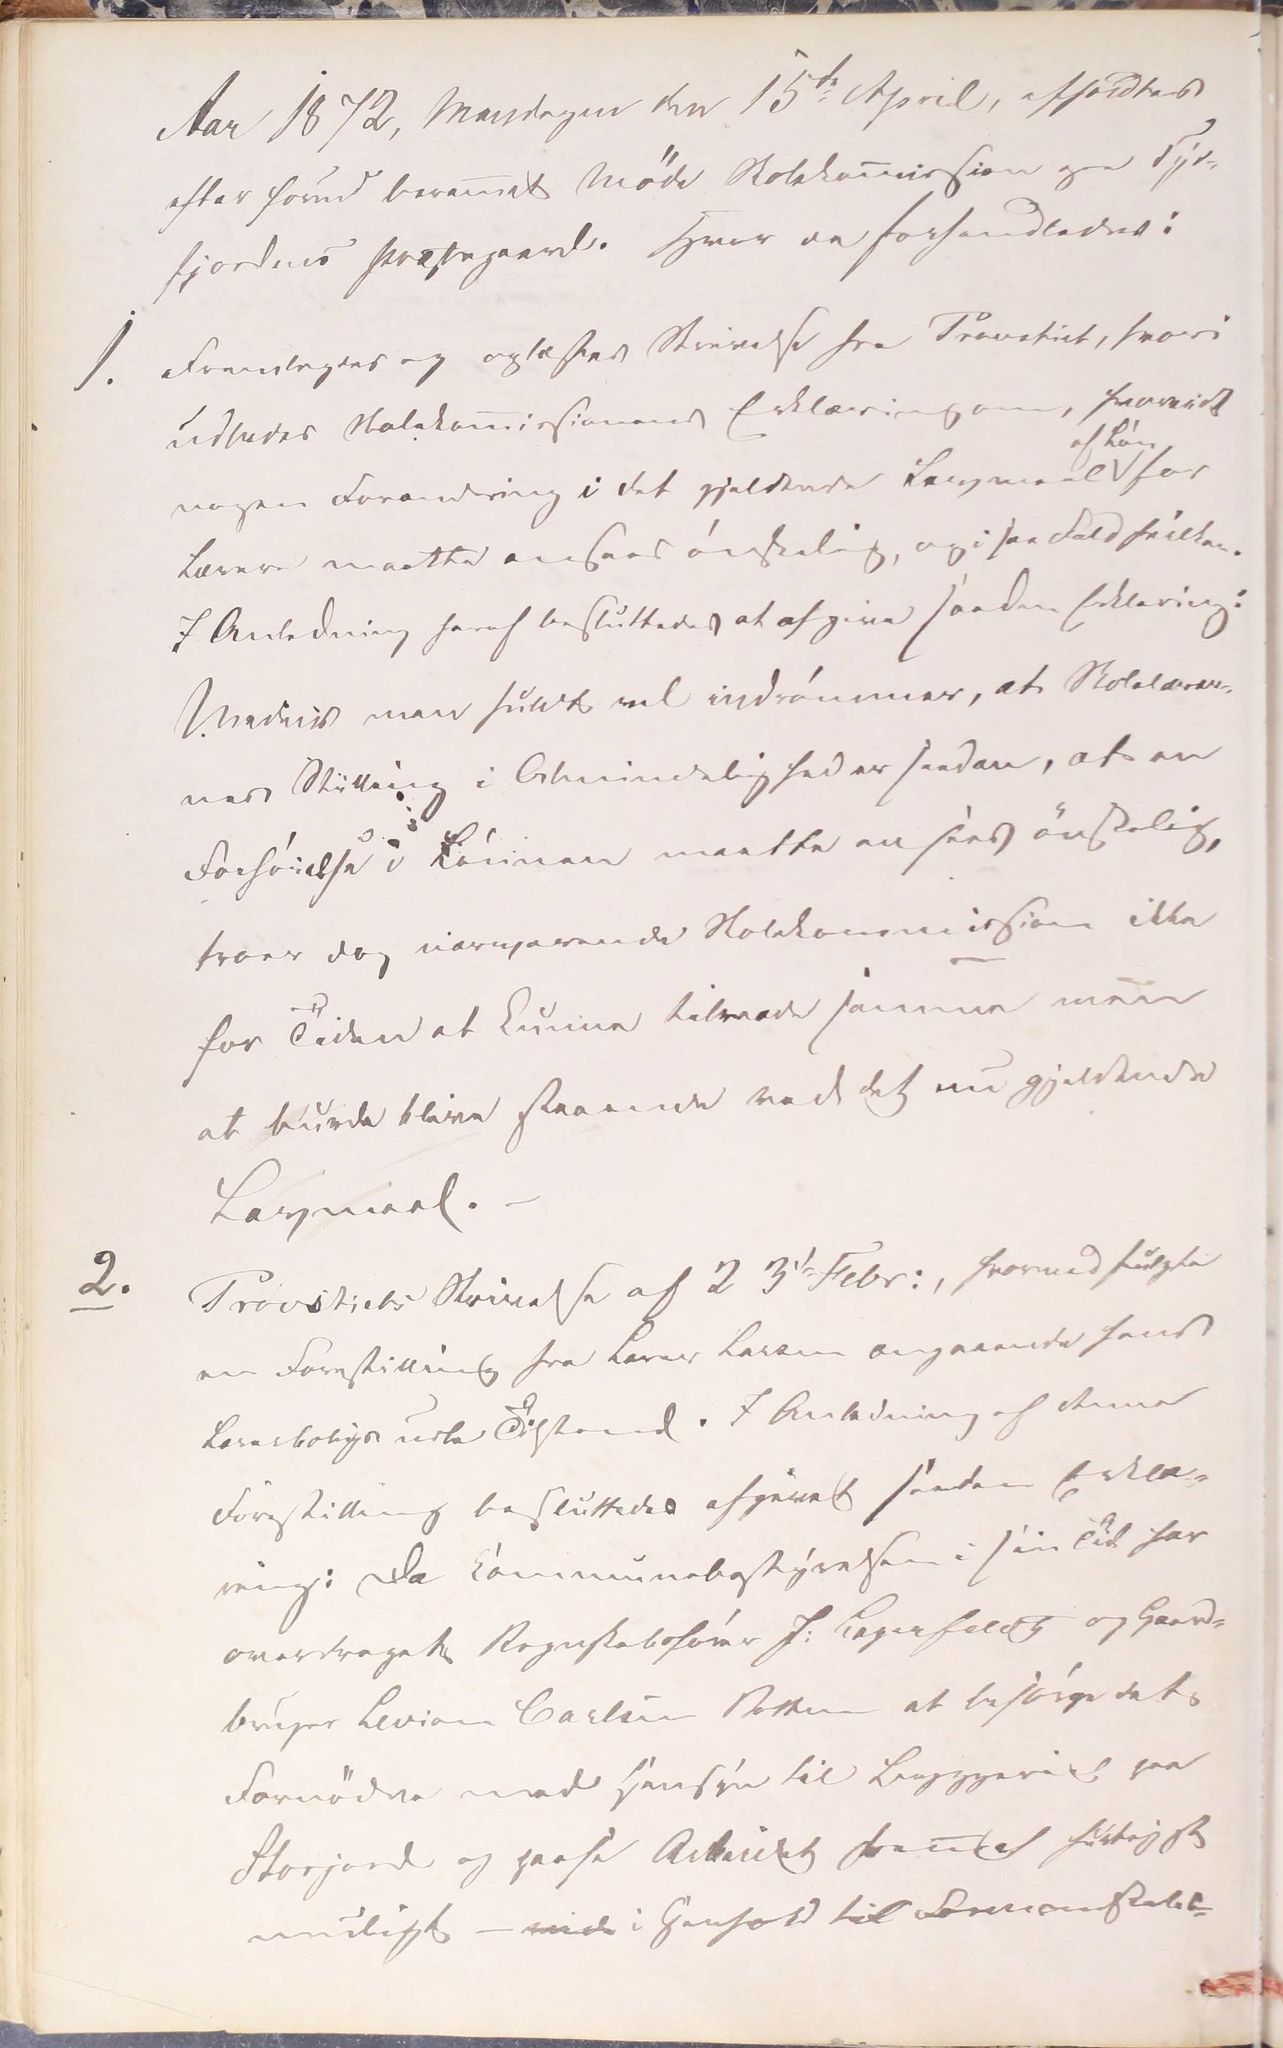 Aar 1872, Mandagen den 15de April, afholdtes
efter forud beram̄et Möde Skolekom̄ission paa Tys-
fjordens Præstegaard. Hvor da forhandledes:
1. Fremlagdes og oplæstes Skrivelse fra Provstiet, hvori
udbedes Skolekom̄issionens Erklæring om, hvorvidt
nogen Forandring i det gjeldende Lavmaal af Løn for
Lærere maatte ansees ónskelig, og i saa Fald hvilken.
I Anledning heraf besluttedes at afgive saadan Erklæring:
Medens man fuldt vel indrómmer, at Skolelærer-
nes Stilling i Almindelighed er saadan, at en
Forhóielse i Lónnen maatte ansees ónskelig,
troer dog nærværende Skolekommission ikke
for Tiden at kunne tilraade samme men
at burde blive staaende ved det nu gjeldende
Lavmaal. -
2. Provstiets Skrivelse af 23de Febr:, hvormed fulgte
en Forestilling fra Lærer Larsen angaaende hans
Lærerboligs usle Tilstand. I Anledning af denne
Forestilling besluttedes afgivet saadan Erklæ-
ring: Da Kommunebestyrelsen i sin Tid har
overdraget Regnskabsfórer J: Lagerfeldt og Gaard-
bruger Levion Carlsen Rotten at besórge det
Fornödne med Hensyn til Byggeriet paa
Storjord og paase Arbeidet fremmet hurtigst
muligt – i Henhold til Formandskabet-